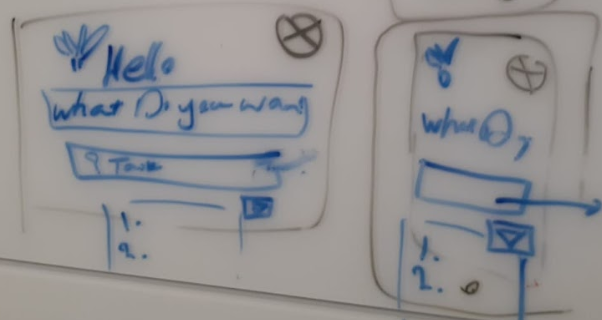 Hello
What Do you want
? Task
1.
2.
what
1.
2.